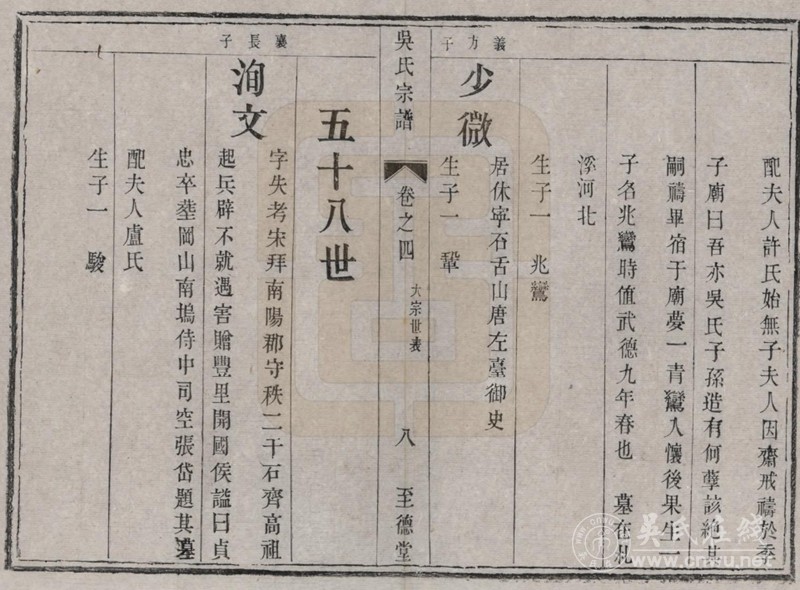 配夫人許氏始無子夫人因齋戒禱於季
子廟曰吾亦吳氏子孫造有何孽該絕其
嗣禱畢宿于廟夢一青鸞入懷後果生一
子名兆鸞時值武德九年春也 墓在札
溪河北
生子一 兆鸞
義方子
少微
居休寧石舌山唐左臺御史
生子一 鞏
吳氏宗譜
卷之四
大宗世表
八
至德堂
五十八世
襄長子
洵文
字失考宋拜南陽郡守秩二千石齊高祖
起兵辟不就遇害贈豐里開國侯謚曰貞
忠卒塟岡山南塢侍中司空張岱題其墓
配夫人盧氏
生子一 駿
吳氏在线
www.cnwu.net